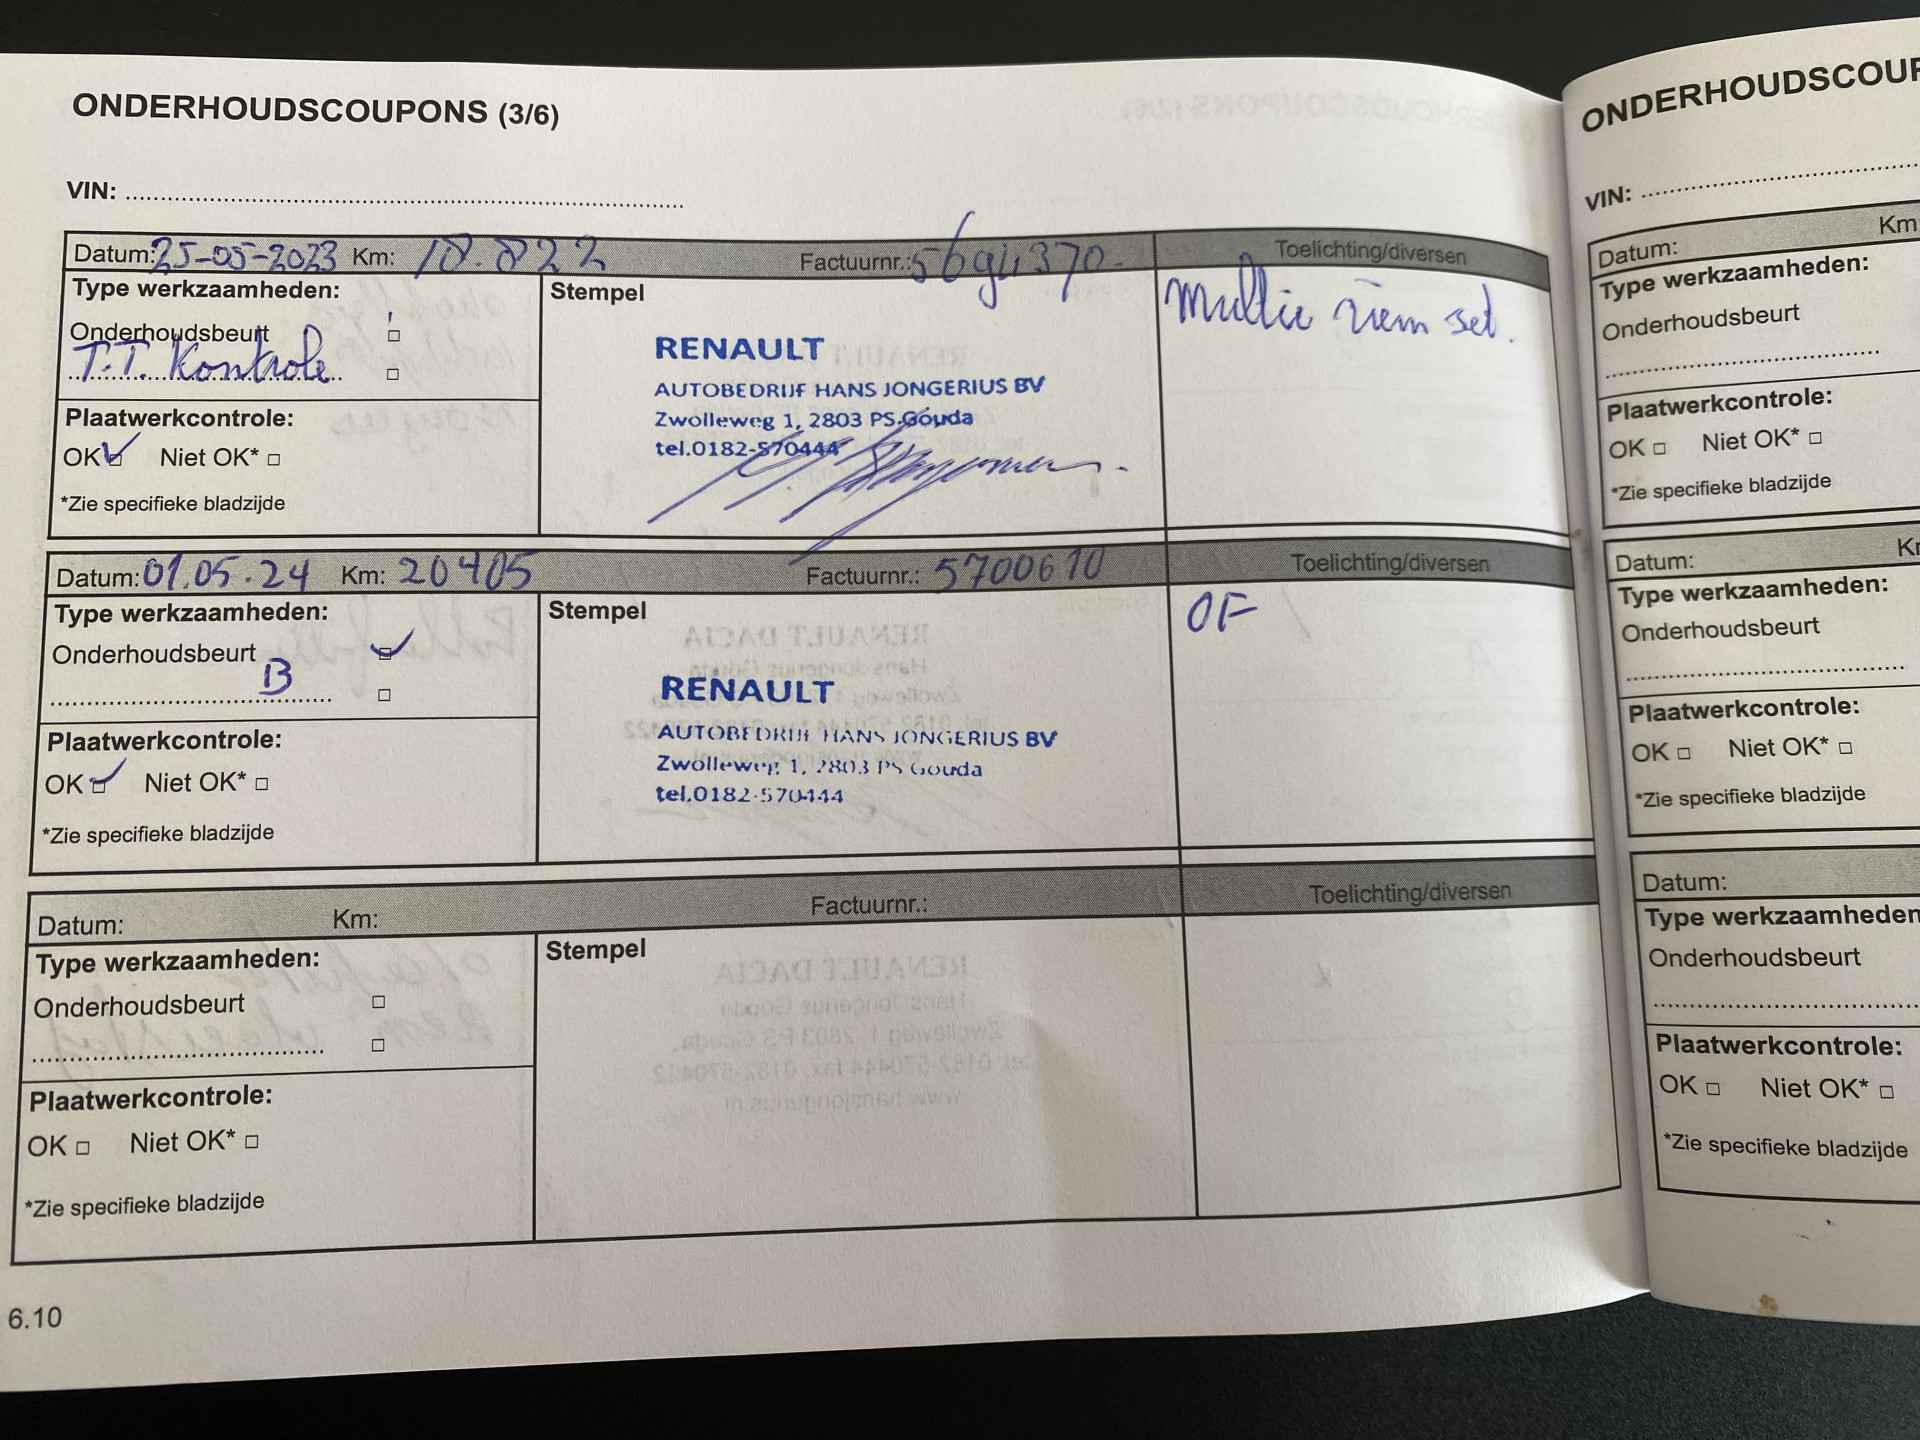 ONDERHOUDSCOUPONS (3/6)
VIN: ................
Datum: 25-05-2023 Km: 18.822 Factuurnr.: Toelichting/diversen
Type werkzaamheden:
Onderhoudsbeurt
T.T. Kontrole
Plaatwerkcontrole:
OK Niet OK*
*Zie specifieke bladzijde
Stempel
RENAULT
AUTOBEDRIJF HANS JONGERIUS BV
Zwolleweg 1, 2803 PS.Gouda
tel.0182-570444
Multie riem set.
Datum: 01.05.24 Km: 20405 Factuurnr.: 5700610 Toelichting/diversen
Type werkzaamheden:
Onderhoudsbeurt
B
Plaatwerkcontrole:
OK Niet OK*
*Zie specifieke bladzijde
Stempel
RENAULT
AUTOBEDRIJF HANS JONGERIUS BV
Zwolleweg 1, 2803 PS Gouda
tel.0182-570444
OF
Datum: Km: Factuurnr.: Toelichting/diversen
Type werkzaamheden:
Onderhoudsbeurt
Plaatwerkcontrole:
OK Niet OK*
*Zie specifieke bladzijde
Stempel
6.10
ONDERHOUDSCOUP
VIN: ................
Datum: Km
Type werkzaamheden:
Onderhoudsbeurt
Plaatwerkcontrole:
OK Niet OK*
*Zie specifieke bladzijde
Datum: K
Type werkzaamheden:
Onderhoudsbeurt
Plaatwerkcontrole:
OK Niet OK*
*Zie specifieke bladzijde
Datum:
Type werkzaamheden
Onderhoudsbeurt
Plaatwerkcontrole:
OK Niet OK*
*Zie specifieke bladzijde